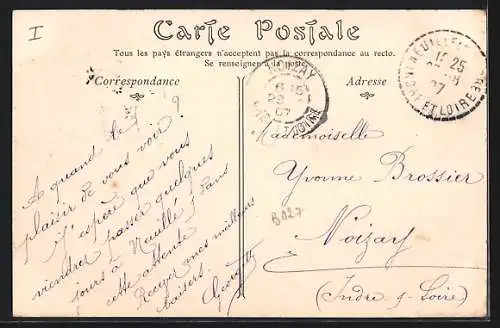 I
Carte Postale
Tous les pays étrangers n'acceptent pas la correspondance au recto.
Se renseigner à la poste.
Correspondance
Adresse
A quand le
plaisir de vous voir ?
J'espère que vous
viendrez passer quelques
jours à Neuillé, dans
cette attente
Recevez mes meilleurs
baisers. Georgette
Mademoiselle
Yvonne Brossier
Noizay
(Indre & Loire)
B127
NOIZAY
6 15
22
07
15 25
07
ET LOIRE